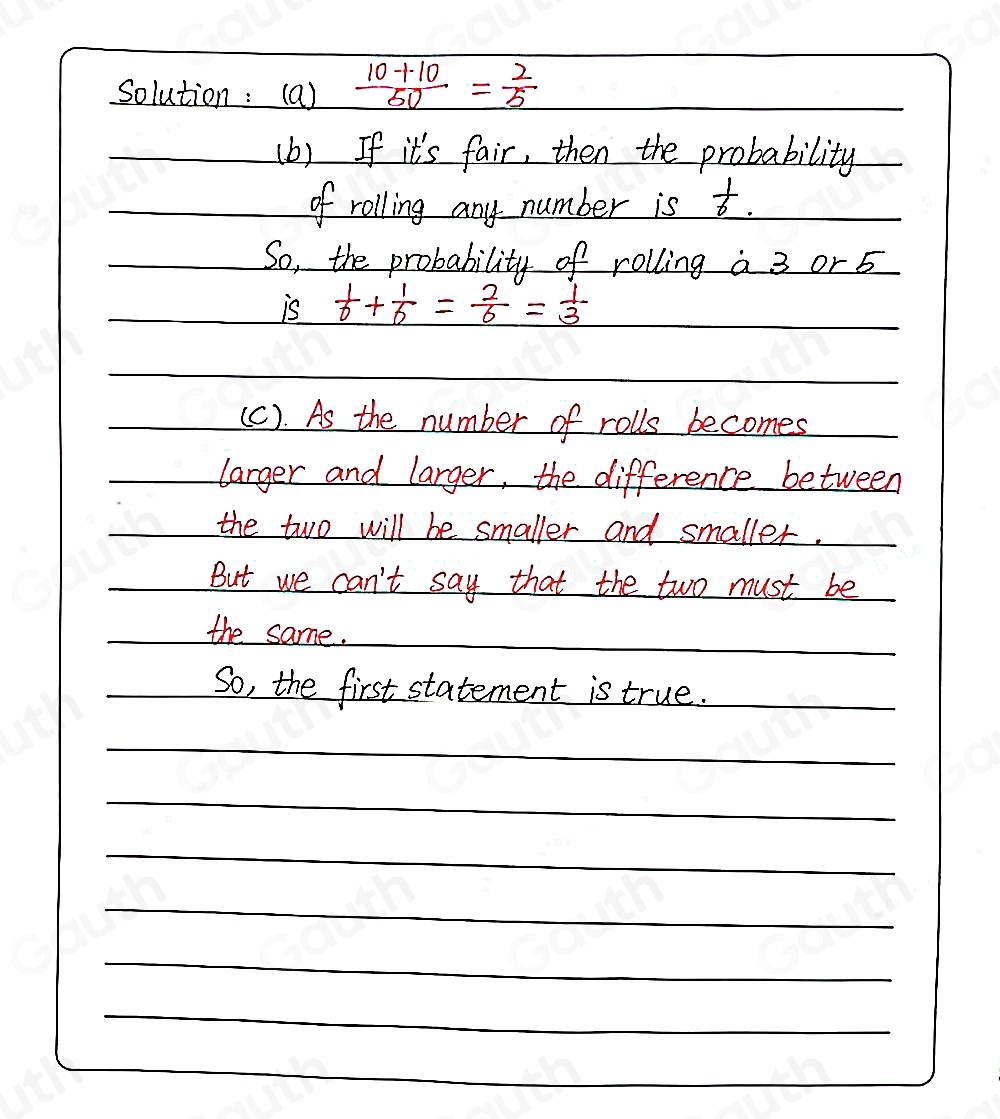 Solution: (a) (10+10)/50 = 2/5
(b) If it's fair, then the probability
of rolling any number is 1/6.
So, the probability of rolling a 3 or 5
is 1/6 + 1/6 = 2/6 = 1/3
(C). As the number of rolls becomes
larger and larger, the difference between
the two will be smaller and smaller.
But we can't say that the two must be
the same.
So, the first statement is true.
Gauth